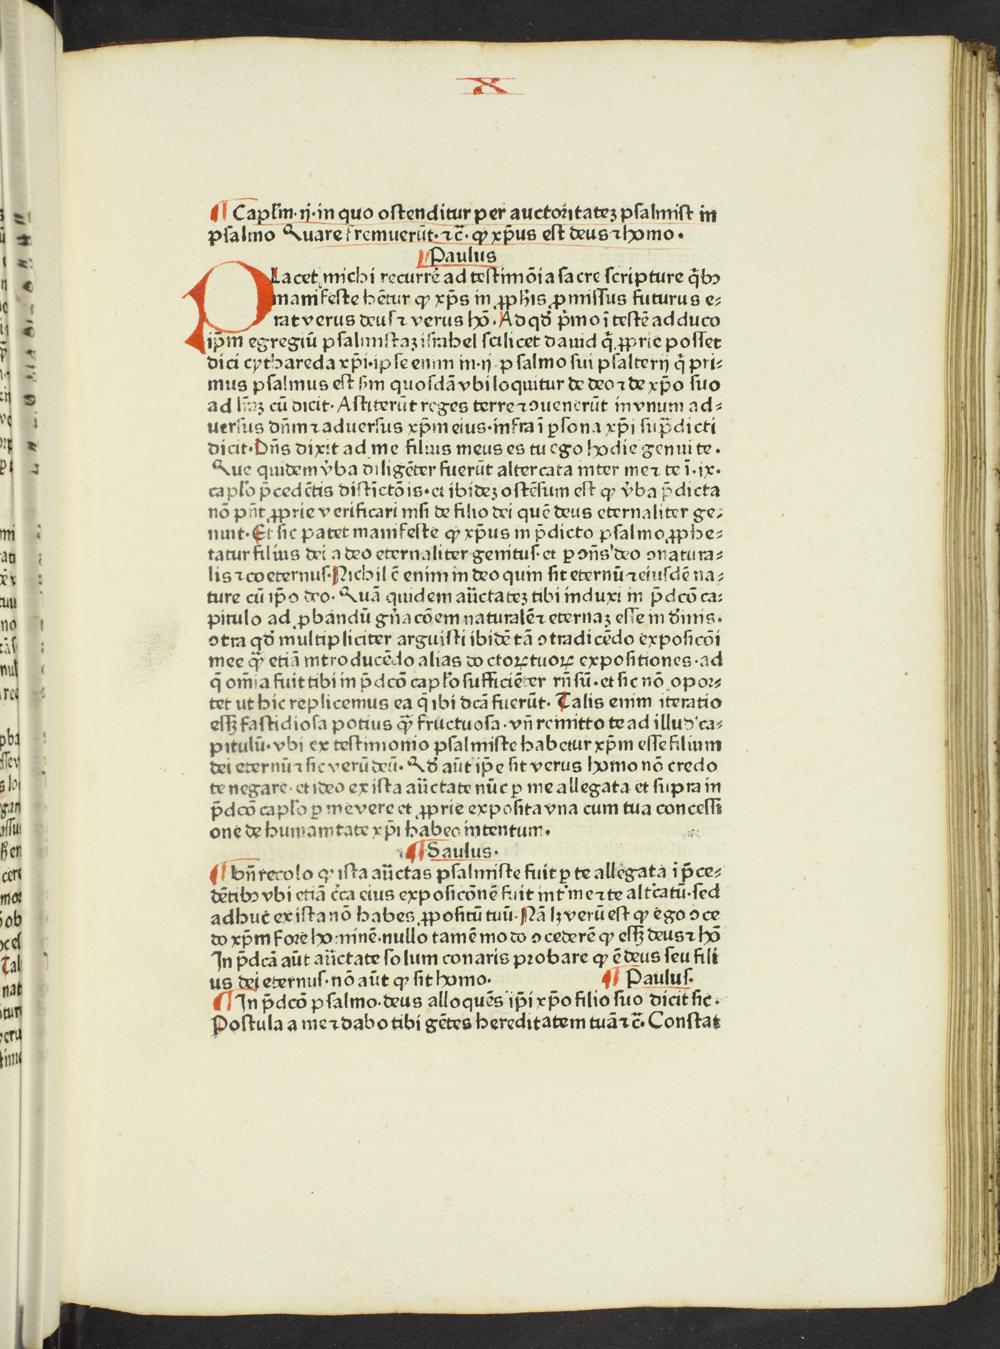 X
¶ Capłm·ij·in quo ostenditur per auctoritatez psalmist in
psalmo Quare fremuerūt·⁊c̄·ꝙ xp̄us est deus ⁊ homo·
¶ Paulus
PLacet michi recurrē ad testimōia sacre scripture q̄bꝫ
manifeste hētur ꝙ xp̄s in ꝓphīs ꝓmissus futurus e⸗
rat verus deus ⁊ verus hō· Ad qđ p̄mo ī testē adduco
ip̄m egregiū psalmistaz israhel scilicet dauid q̄ ꝓprie posset
dici cythareda xp̄i·ipse enim in·ij·psalmo sui psalterij q̄ pri⸗
mus psalmus est sm̄ quosdā vbi loquitur de deo ⁊ de xp̄o suo
ad lr̄az cū dicit· Astiterūt reges terre ⁊ ɔuenerūt in vnum ad⸗
uersus dn̄m ⁊ aduersus xp̄m eius·infra ī ꝑsona xp̄i sup̄dicti
dicit·Dn̄s dixit ad me filius meus es tu ego hodie genui te·
Que quidem v̄ba diligēter fuerūt altercata inter me ⁊ te ī·ix·
capło p̄cedētis distictōis·et ibidez ostēsum est ꝙ v̄ba p̄dicta
nō pn̄t ꝓprie verificari nisi de filio dei quē deus eternaliter ge⸗
nuit·Et sic patet manifeste ꝙ xp̄us in p̄dicto psalmo ꝓphe⸗
tatur filius dei a deo eternaliter genitus·et ꝑ ɔn̄s deo ɔnatura⸗
lis ⁊ coeternus·Nichil ē enim in deo quin sit eternū ⁊ eiusdē na⸗
ture cū ip̄o deo· Quā quidem auctatez tibi induxi in p̄dcō ca⸗
pitulo ad ꝓbandū gn̄acōem naturalē ⁊ eternaz esse in diuīnis·
ɔtra qđ multipliciter arguisti ibidē tā ɔtradicēdo exposicōi
mee q̄ꝫ etiā introducēdo alias doctoꝝ tuoꝝ expositiones·ad
q̄ om̄ia fuit tibi in p̄dcō capło sufficiēter rn̄sū·et sic nō opor⸗
tet ut hic replicemus ea q̄ ibi dcā fuerūt· Talis enim iteratio
esſꝫ fastidiosa potius q̄ꝫ fructuosa·vn̄ remitto te ad illud ca⸗
pitulū·vbi ex testimonio psalmiste habetur xp̄m esse filium
dei eternū ⁊ sic verū deū· Qđ aūt ip̄e sit verus homo nō credo
te negare·et ideo ex ista auctate nūc ꝑ me allegata et supra in
p̄dcō capło ꝑ me vere et ꝓprie exposita vna cum tua concessi
one de humanitate xp̄i habeo intentum·
¶ Saulus·
¶ Bn̄ recolo ꝙ ista auctas psalmiste fuit ꝑ te allegata ī p̄ce⸗
dētibꝫ vbi etiā c̄ca eius exposicōnē fuit int̄ me ⁊ te alt̄catū·sed
adhuc ex ista nō habes ꝓpositū tuū·Nā lꝫ verū est ꝙ ego ɔce
do xp̄m fore hominē·nullo tamē modo ɔcederē ꝙ esſꝫ deus ⁊ hō
In p̄dcā aūt auctate solum conaris probare ꝙ ē deus seu fili
us dei eternus·nō aūt ꝙ sit homo· ¶ Paulus·
¶ In p̄dcō psalmo·deus alloquēs ip̄i xp̄o filio suo dicit sic·
Postula a me ⁊ dabo tibi gētes hereditatem tuā ⁊c̄· Constat